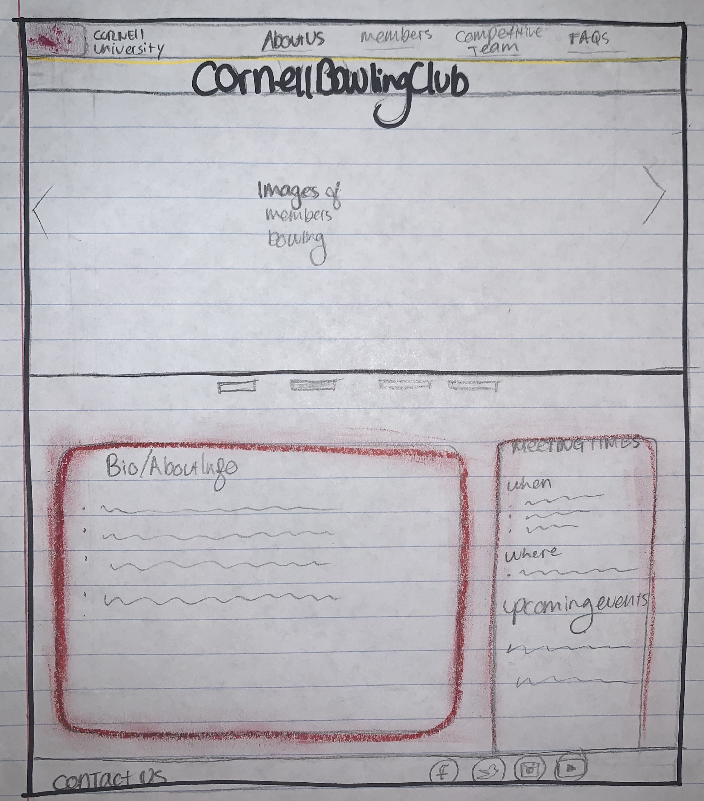 CORNELL
University
About Us
members
Competitive
Team
FAQS
Cornell Bowling Club
Images of
members
bowling
Bio/About Info
MEETING TIMES
when
where
upcoming events
contact us
f